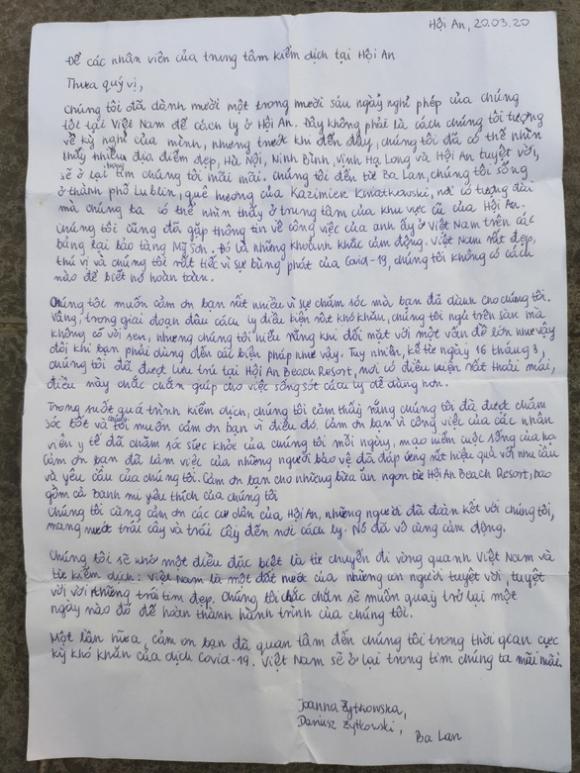 Hội An, 20.03.20
Để các nhân viên của trung tâm kiểm dịch tại Hội An
Thưa quý vị,
Chúng tôi đã dành mười một trong mười sáu ngày nghỉ phép của chúng
tôi tại Việt Nam để cách ly ở Hội An. Đây không phải là cách chúng tôi tưởng tượng
về kỳ nghỉ của mình, nhưng trước khi đến đây, chúng tôi đã có thể nhìn
thấy nhiều địa điểm đẹp, Hà Nội, Ninh Bình, Vịnh Hạ Long và Hội An tuyệt vời,
sẽ ở lại trong tim chúng tôi mãi mãi. Chúng tôi đến từ Ba Lan, chúng tôi sống
ở thành phố Lublin, quê hương của Kazimier Kwiatkowski, nơi có tượng đài
mà chúng ta có thể nhìn thấy ở trung tâm của khu vực cũ của Hội An.
Chúng tôi cũng đã gặp thông tin về công việc của anh ấy ở Việt Nam trên các
bảng tại bảo tàng Mỹ Sơn. Đó là những khoảnh khắc cảm động. Việt Nam rất đẹp,
thú vị và chúng tôi rất tiếc vì sự bùng phát của Covid-19, chúng tôi không có cách
nào để biết nó hoàn toàn.
Chúng tôi muốn cảm ơn bạn rất nhiều vì sự chăm sóc mà bạn đã dành cho chúng tôi.
Vâng, trong giai đoạn đầu cách ly điều kiện rất khó khăn, chúng tôi ngủ trên sàn mà
không có vòi sen, nhưng chúng tôi hiểu rằng khi đối mặt với một vấn đề lớn như vậy
đôi khi bạn phải dùng đến các biện pháp như vậy. Tuy nhiên, kể từ ngày 16 tháng 3,
chúng tôi đã được lưu trú tại Hội An Beach Resort, nơi có điều kiện rất thoải mái,
điều này chắc chắn giúp cho việc sống sót cách ly dễ dàng hơn.
Trong suốt quá trình kiểm dịch, chúng tôi cảm thấy rằng chúng tôi đã được chăm
sóc tốt và chúng tôi muốn cảm ơn bạn vì điều đó. Cảm ơn bạn vì công việc của các nhân
viên y tế đã chăm sóc sức khỏe của chúng tôi mỗi ngày, mạo hiểm cuộc sống của họ.
Cảm ơn bạn đã làm việc của những người bảo vệ đã đáp ứng rất hiệu quả với nhu cầu
và yêu cầu của chúng tôi. Cảm ơn bạn cho những bữa ăn ngon từ Hội An Beach Resort, bao
gồm cả banh mi yêu thích của chúng tôi
Chúng tôi cũng cảm ơn các cư dân của Hội An, những người đã đoàn kết với chúng tôi,
mang nước trái cây và trái cây đến nơi cách ly. Nó đã vô cùng cảm động.
Chúng tôi sẽ nhớ một điều đặc biệt là từ chuyến đi vòng quanh Việt Nam và
từ kiểm dịch: Việt Nam là một đất nước của những con người tuyệt vời, tuyệt
vời với những trái tim đẹp. Chúng tôi chắc chắn sẽ muốn quay trở lại một
ngày nào đó để hoàn thành hành trình của chúng tôi.
Một lần nữa, cảm ơn bạn đã quan tâm đến chúng tôi trong thời gian cực
kỳ khó khăn của dịch Covid-19. Việt Nam sẽ ở lại trong tim chúng ta mãi mãi.
Joanna Żytkowska,
Dariusz Żytkowski,
Ba Lan